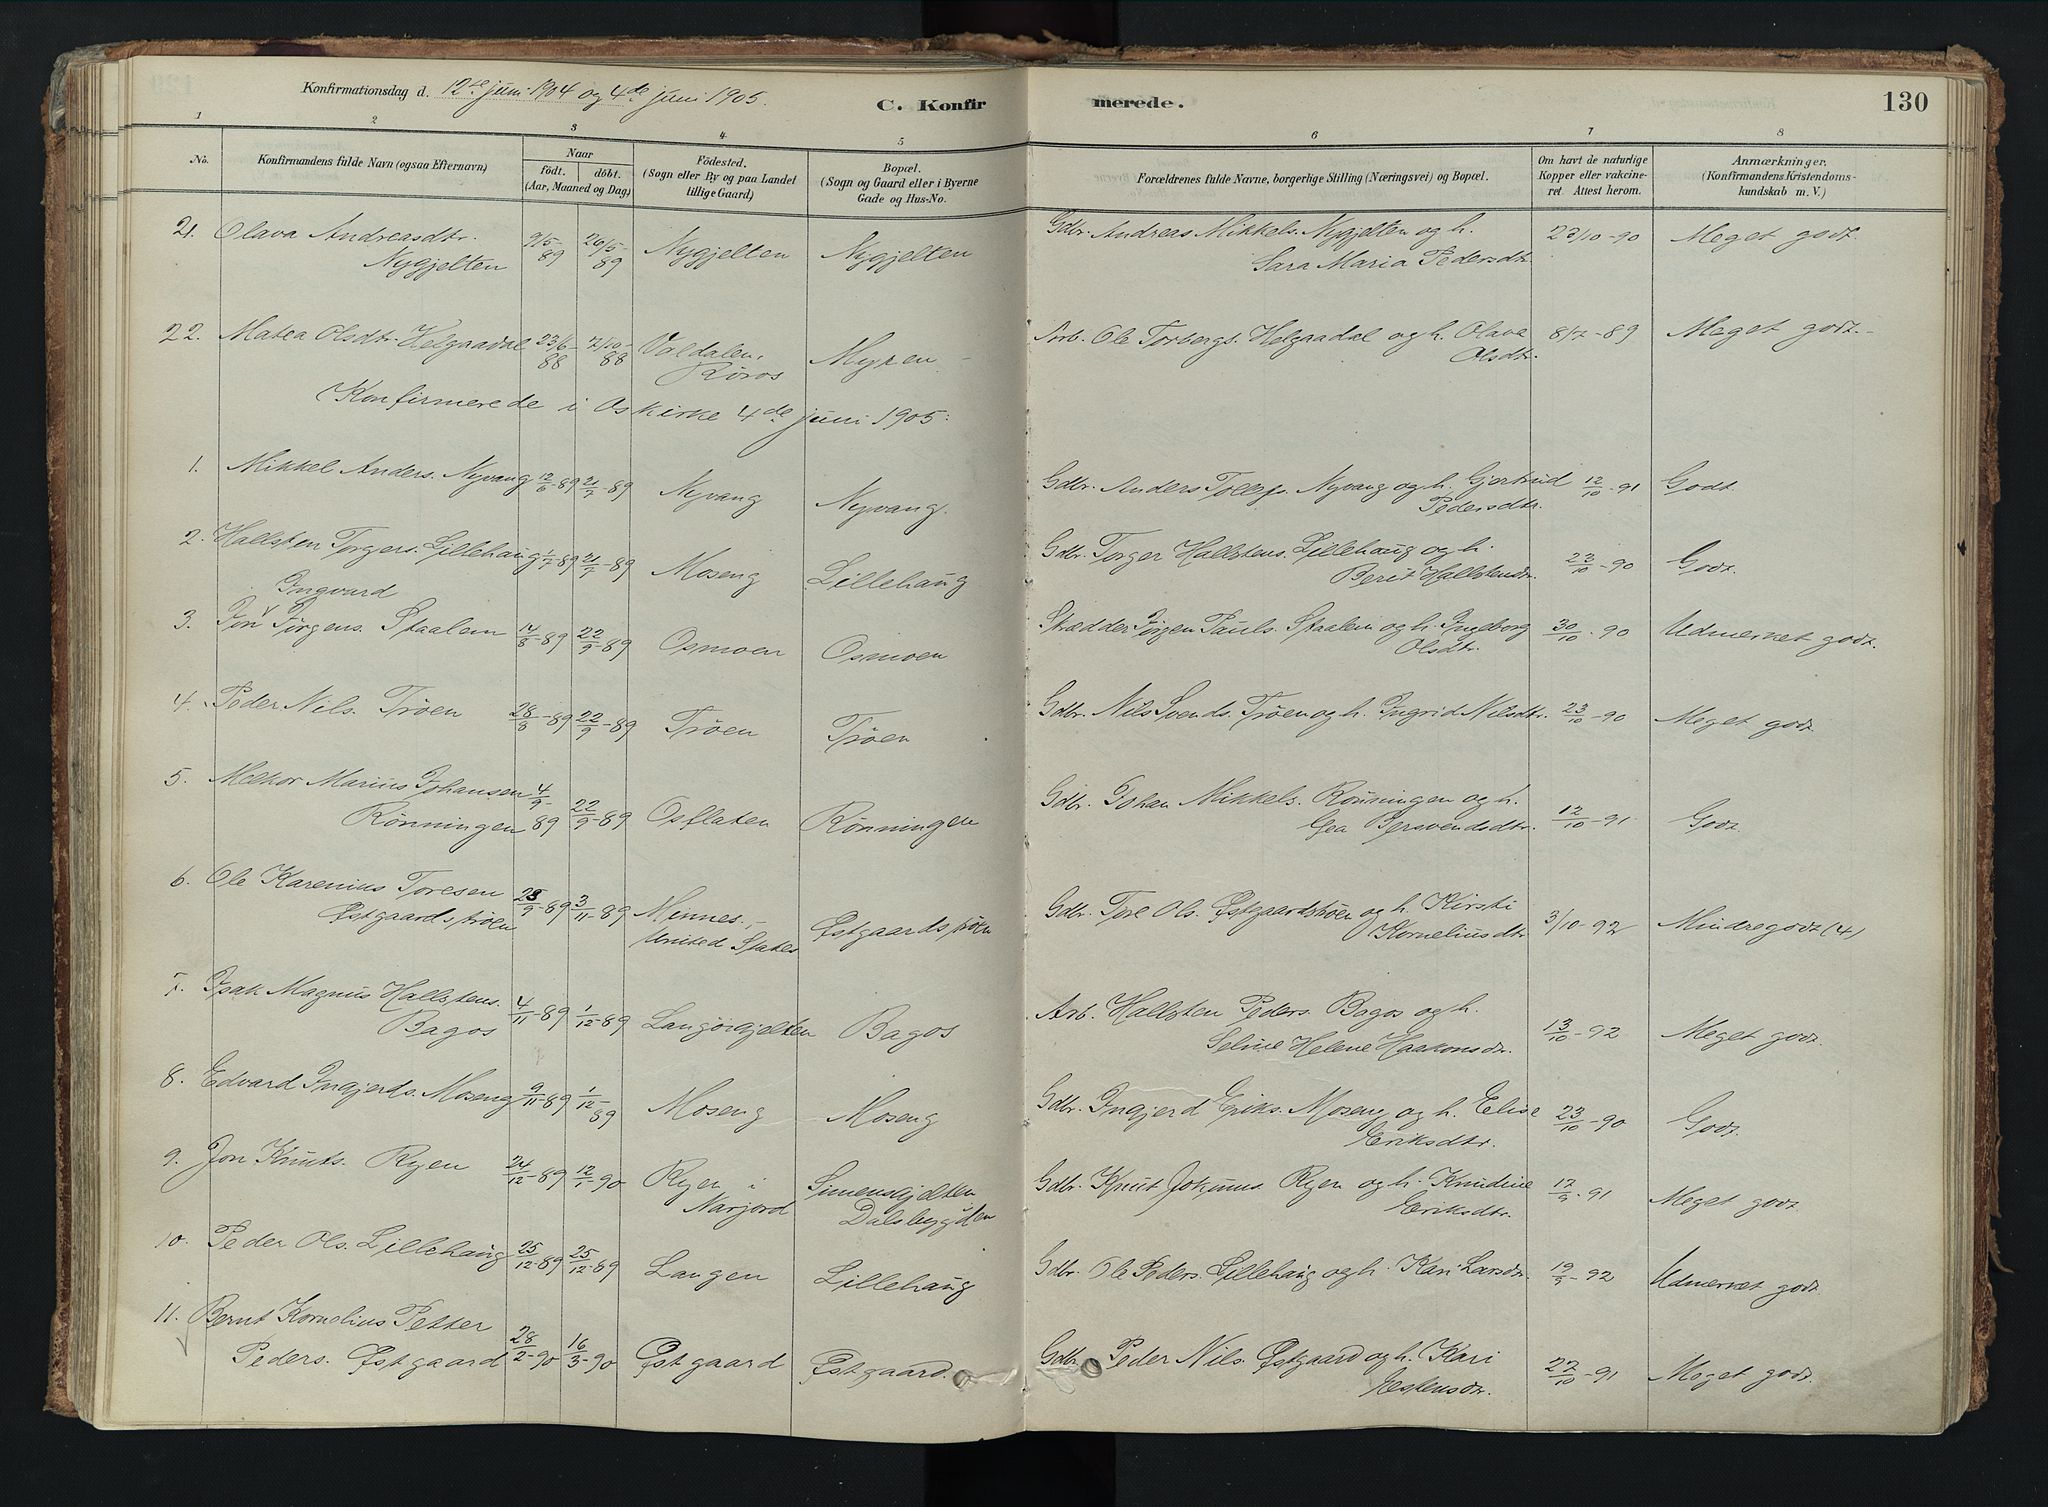 Konfirmationsdag d. 12te juni 1904 og 4de juni 1905.
C. Konfirmerede.
130
1 2 3 4 5 6 7 8
No.
Konfirmandens fulde Navn (ogsaa Efternavn)
Naar
födt. döbt.
(Aar, Maaned og Dag)
Födested.
(Sogn eller By og paa Landet
tillige Gaard)
Bopæl.
(Sogn og Gaard eller i Byerne
Gade og Hus-No.
Forældrenes fulde Navne, borgerlige Stilling (Næringsvei) og Bopæl.
Om havt de naturlige
Kopper eller vakcine-
ret. Attest herom.
Anmærkninger.
(Konfirmandens Kristendoms-
kundskab m. V.)
21. Olava Andreasdtr. 9/5- 26/5- Nygjelten Nygjelten Gdbr. Andreas Mikkels. Nygjelten og h. 22/10-90 Meget godt.
Nygjelten 89 89 Sara Maria Pedersdtr.
22. Matea Olsdtr. Helgaadal 23/6- 7/10- Valdalen, Myren Arb. Ole Torbergs. Helgaadal og h. Olava 8/7-89 Meget godt.
88 88 Røros Olsdtr.
Konfirmerede i Os kirke 4de juni 1905:
1. Mikkel Anders. Nyvang 12/6-89 21/7-89 Nyvang Nyvang. Gdbr. Anders Tollefs. Nyvang og h. Gjertrud 12/10-91 Godt.
Pedersdtr.
2. Hallsten Torgers. Lillehaug 1/7-89 21/7-89 Moseng Lillehaug Gdbr. Torger Hallstens. Lillehaug og h. 23/10-90 Godt.
Berit Hallstensdtr.
Ingvard
3. Jon Jørgens. Staalem 14/8-89 22/9-89 Osmoen Osmoen Strædder Jørgen Pauls. Staalem og h. Ingeborg 30/10-90 Udmerket godt.
Olsdtr.
4. Peder Nils. Trøen 28/8-89 22/9-89 Trøen Trøen Gdbr. Nils Svends. Trøen og h. Ingrid Nilsdtr. 23/10-90 Meget godt.
5. Melkor Marius Johansen 4/9- 22/9-89 Osflaten Rønningen Gdbr. Johan Mikkels. Rønningen og h. 12/10-91 Godt.
Rønningen 89 Gea Bersvendsdtr.
6. Ole Karenius Toresen 25/9-89 3/11-89 Minnes.,- Østgaardstrøen Gdbr. Tore Ols. Østgaardstrøen og h. Kirsti 3/10-92 Mindre godt (4)
Østgaardstrøen United States Korneliusdtr.
7. Isak Magnus Hallstens. 4/11-89 1/12-89 Langørgjelten Bagos Arb. Hallsten Peders. Bagos og h. 13/10-92 Meget godt.
Bagos Seline Helene Haakonsdr.
8. Edvard Ingjerds. Moseng 9/11-89 1/12-89 Moseng Moseng Gdbr. Ingjerd Eriks. Moseng og h. Elise 23/10-90 Godt.
Eriksdtr.
9. Jon Knuts. Ryen 24/12-89 12/1-90 Ryen i Simensgjelten Gdbr. Knut Johnns. Ryen og h. Knudine 17/9-91 Meget godt.
Narjord Dalsbygden Eriksdtr.
10. Peder Ols. Lillehaug 25/12-89 25/12-89 Langen Lillehaug Gdbr. Ole Peders. Lillehaug og h. Kari Larsdr. 19/9-92 Udmerket godt.
11. Bernt Kornelius Petter
Peders. Østgaard 28/2-90 16/3-90 Østgaard Østgaard. Gdbr. Peder Nils. Østgaard og h. Kari 27/10-91 Meget godt.
Estensdr.